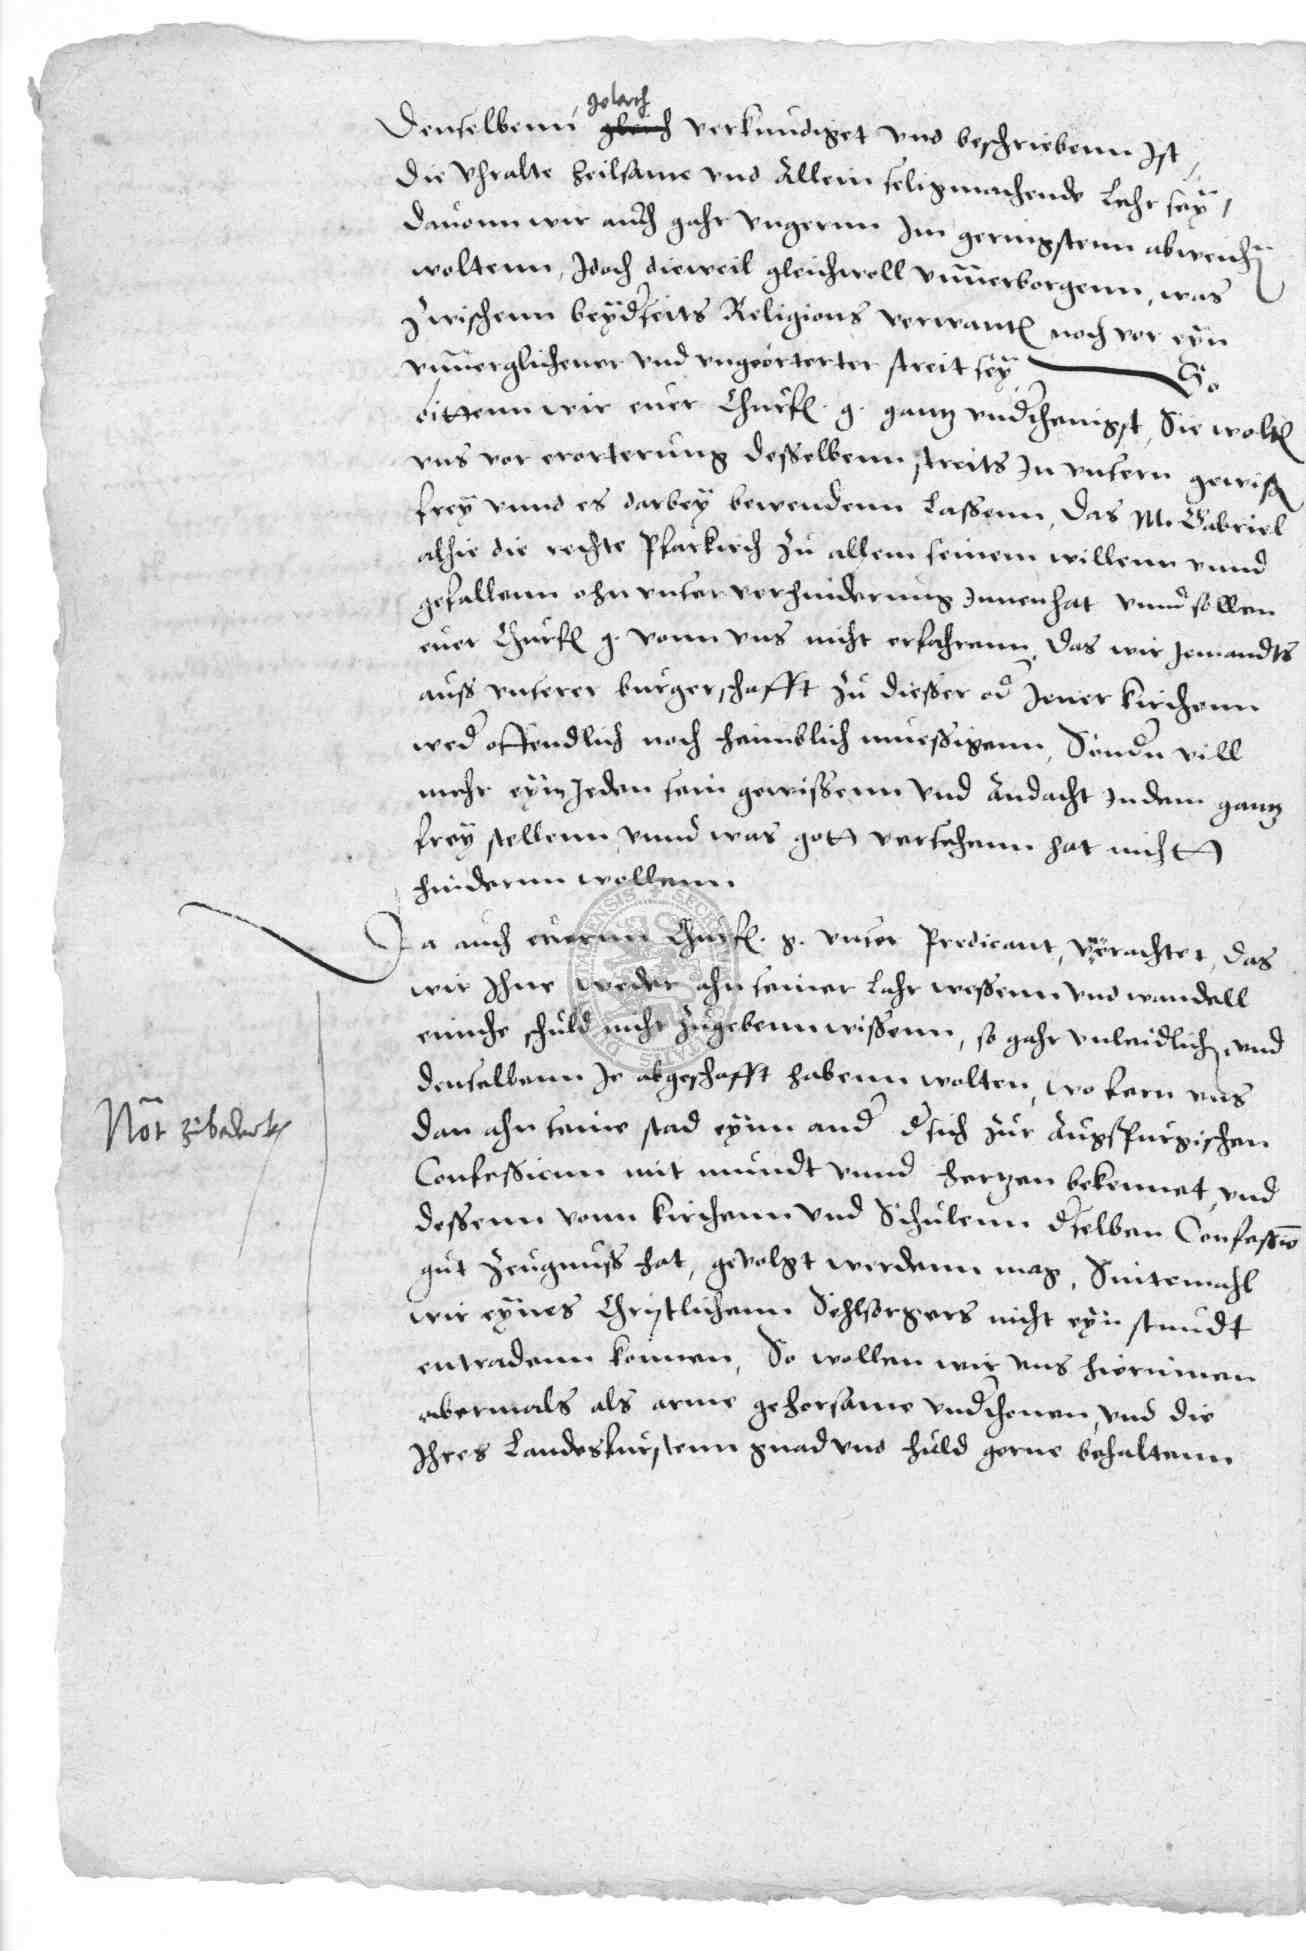 Denselbenn verkundiget vnd beschriebenn Ist,
die Vhralte heilsame vnd Allein seligmachende Lehr seÿ,
dauonn wir auch gahr vngernn Im geringstenn abweichen
woltenn, Idoch dieweil gleichwoll vnuerborgenn, was
Zwischenn beÿdseits Religions verwanten noch vor eÿn
vnuerglichener vnd vngeorterter streit seÿ So
bittenn wir euer Churf. g. gantz vnderthenigst, Sie wolten
vns vor erorterung desselbenn streits In vnsern gewissen
freÿ vnnd es darbeÿ bewendenn Lassenn, Das M. Gabriel
alhie die rechte Pfarkirch zu allem seinem willenn vnnd
gefallenn ohn vnser verhinderung Innenhat vnnd sollen
euer Churf g. vonn vns nicht erfahrenn, das wir Jemandts
auss vnserer burgerschafft zu diesser oder Jener kirchenn
weder offendlich noch heimblich muessigenn, Sondern vill
mehr eÿm Jeden sein gewissenn vnd Andacht Indem gantz
freÿ stellenn vnnd was gott versehenn hat nicht
hindernn wollenn
Da auch euernn Churf. g. vnser Predicant, das
wir Ihne weder ahn seiner Lahr wessenn vnd wandell
eniche schuld nicht zugebenn wissenn, so gahr vnleidlich, vnd
denselbenn Je abgeschafft habenn wolten, wo fern vns
dan ahn seine stad eÿnn ander der sich zur Augspurgischen
Confessionn mit mundt vnnd hertzen bekennet, vnd
dessenn vonn kirchenn vnd Schulenn derselben Confession
gut Zeugnuss hat, gevolgt werdenn mag, Sintemahl
wir eÿnes Christlichenn Sehlsorgers nicht eÿn stundt
entradenn konnen, So wollen wir vns hierinnen
abermals als arme gehorsame vnderthonen, vnd die
Ihres Landesfurstenn gnad vnd huld gerne behaltenn
Not zubedenken